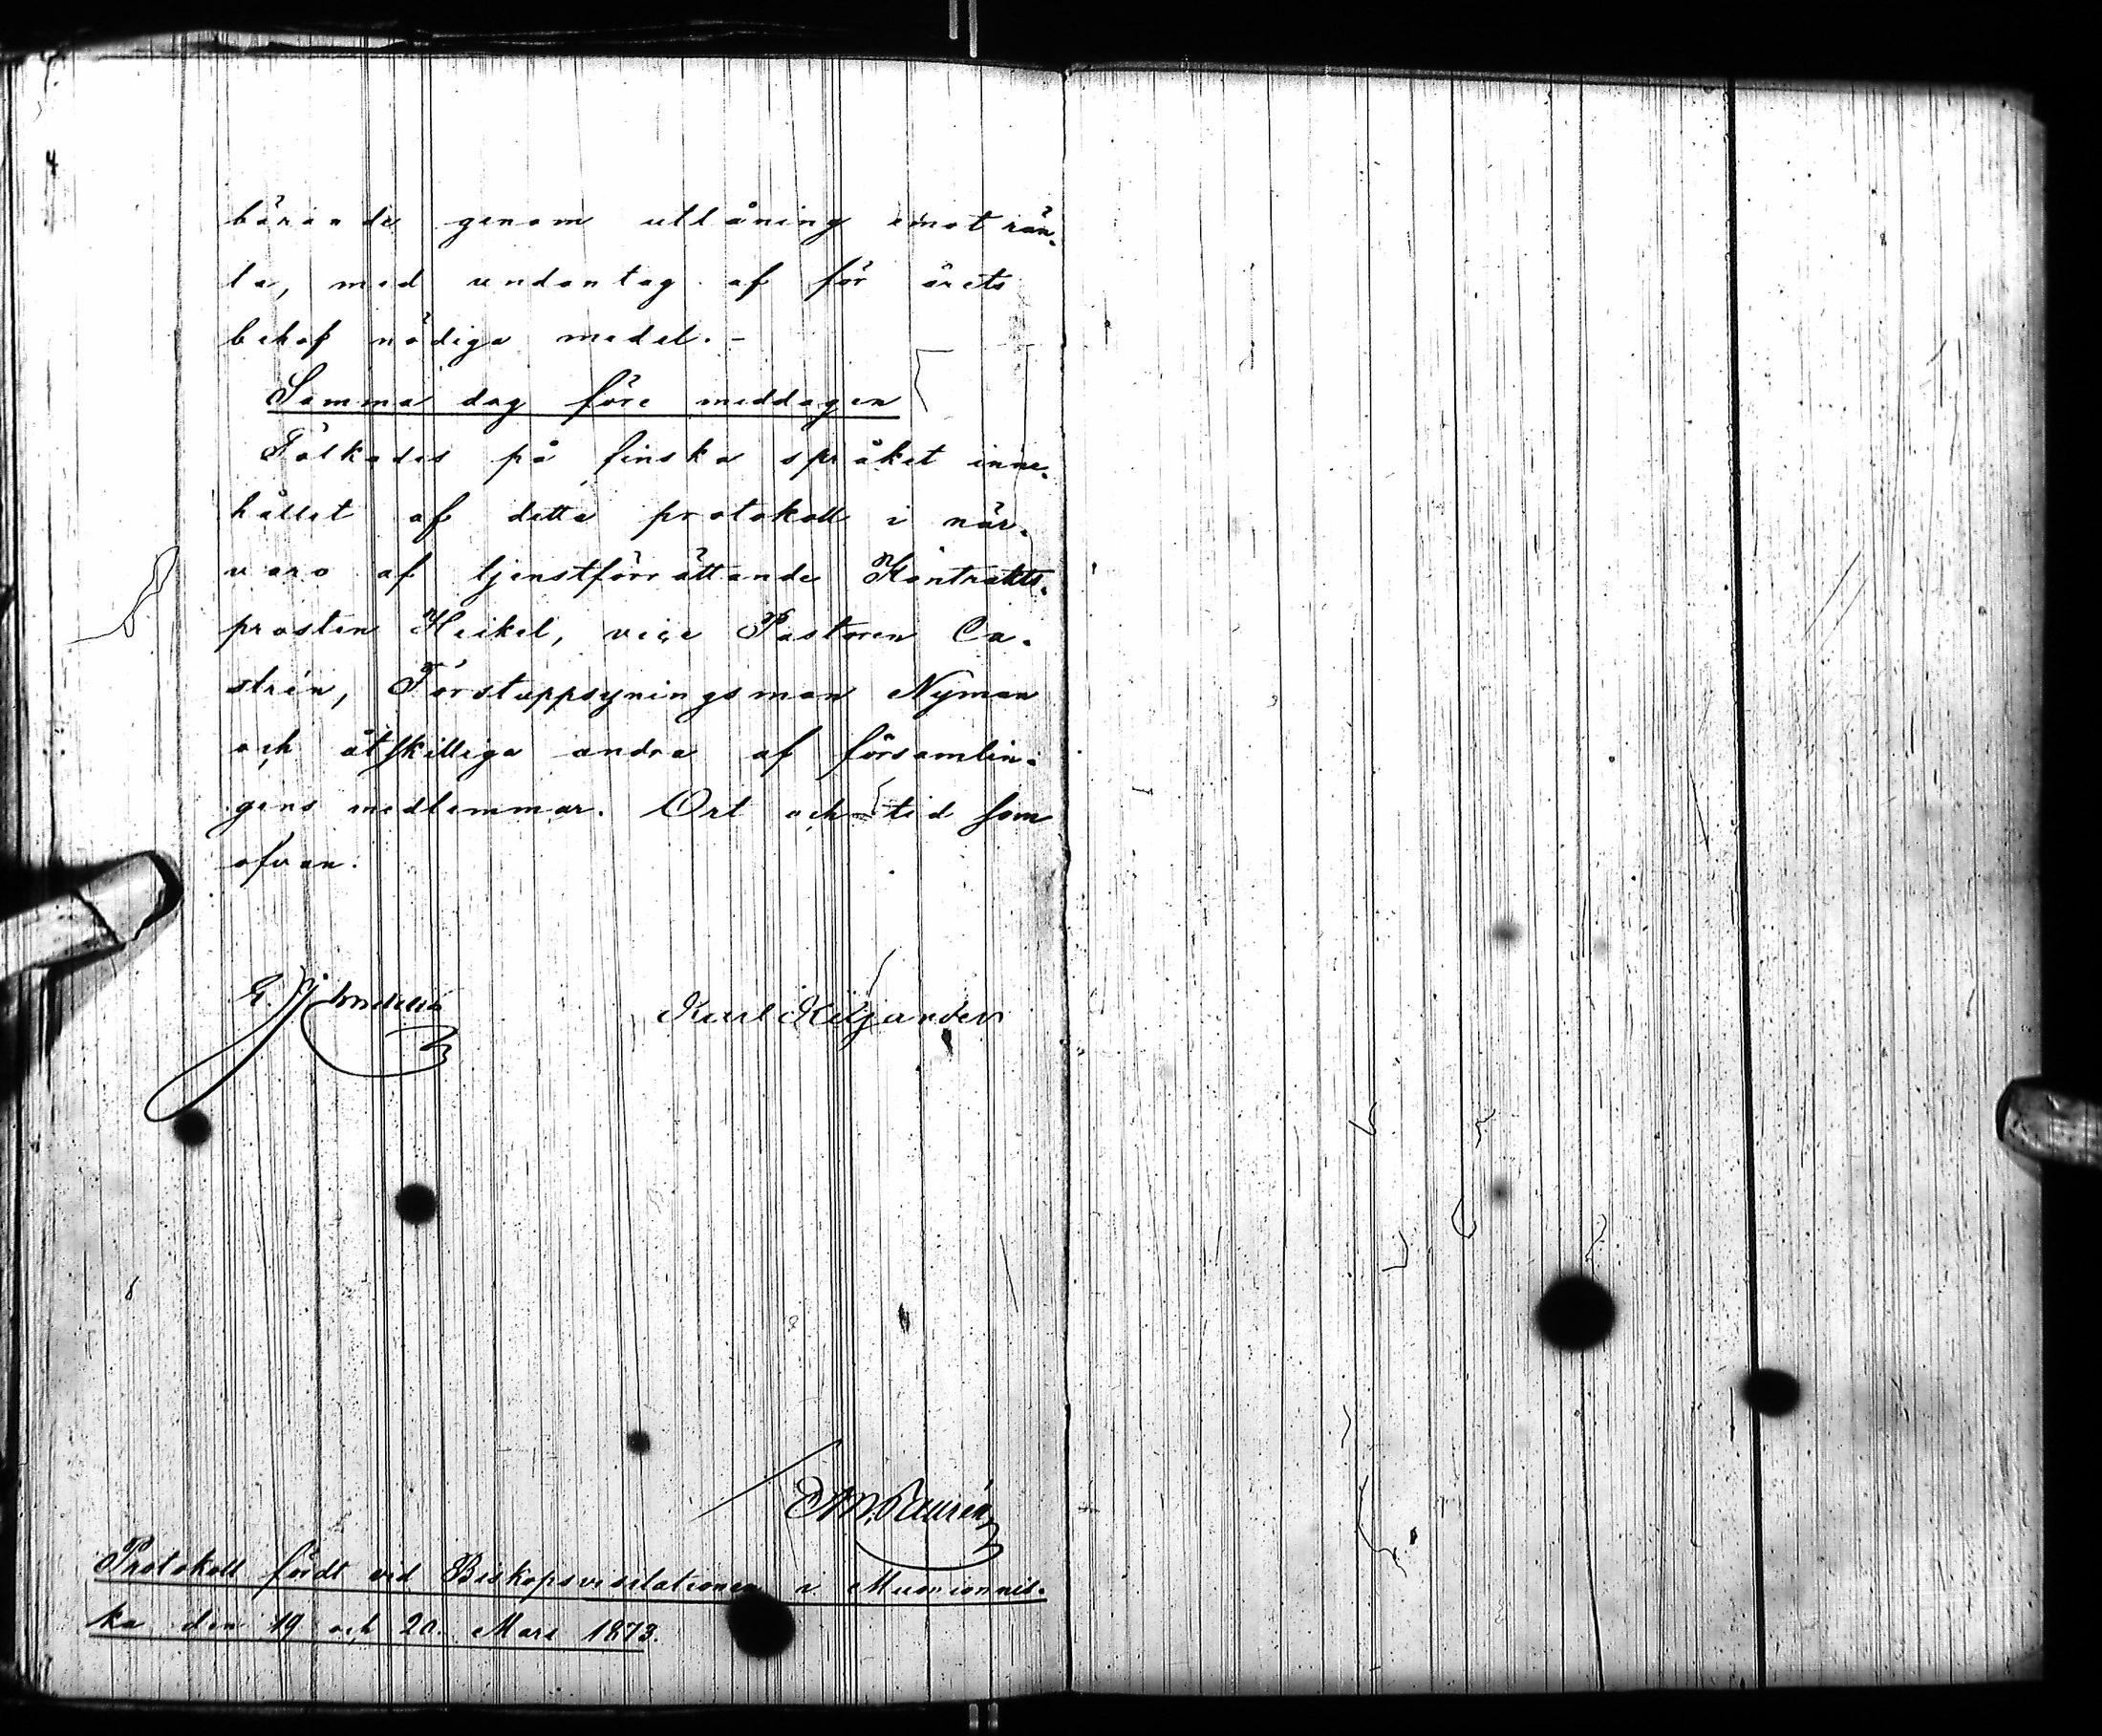 bärande genom utlåning emot rän-
ta, med undantag af för årets
behof nödiga medel. -
Samma dag före middagen
Tolkades på finska språket inne-
hållet af detta protokoll i när-
varo af tjenstförrättande Kontrakts-
prosten Heikel, vice Pastoren Ca-
strén, Forstuppsyningsman Nyman
och åtskilliga andra af församlin-
gens medlemmar. Ort och tid som
ofvan.
Karl Kiljander
Protokoll fördt vid Biskopsvisitationen i Muonionnis-
ka den 19 och 20. Mars 1873.